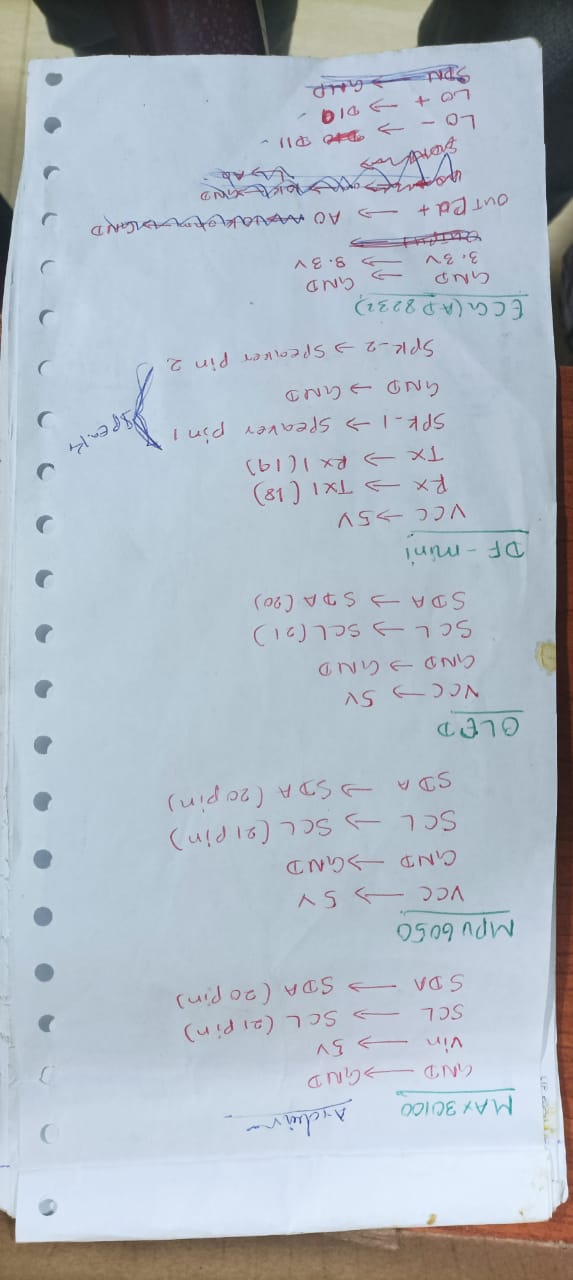 MAX30100 Arduino
GND → GND
Vin → 5V
SCL → SCL (21pin)
SDA → SDA (20pin)
MPU6050
VCC → 5V
GND → GND
SCL → SCL (21pin)
SDA → SDA (20pin)
OLED
VCC → 5V
GND → GND
SCL → SCL (21)
SDA → SDA (20)
DF-mini
VCC → 5V
RX → TX1 (18)
TX → RX1 (19)
SPK-1 → Speaker pin 1
GND → GND
SPK-2 → Speaker pin 2
ECG (AD8232)
GND → GND
3.3V → 3.3V
OUTPut → A0
LO - → D11
LO + → D10
SDN → GND